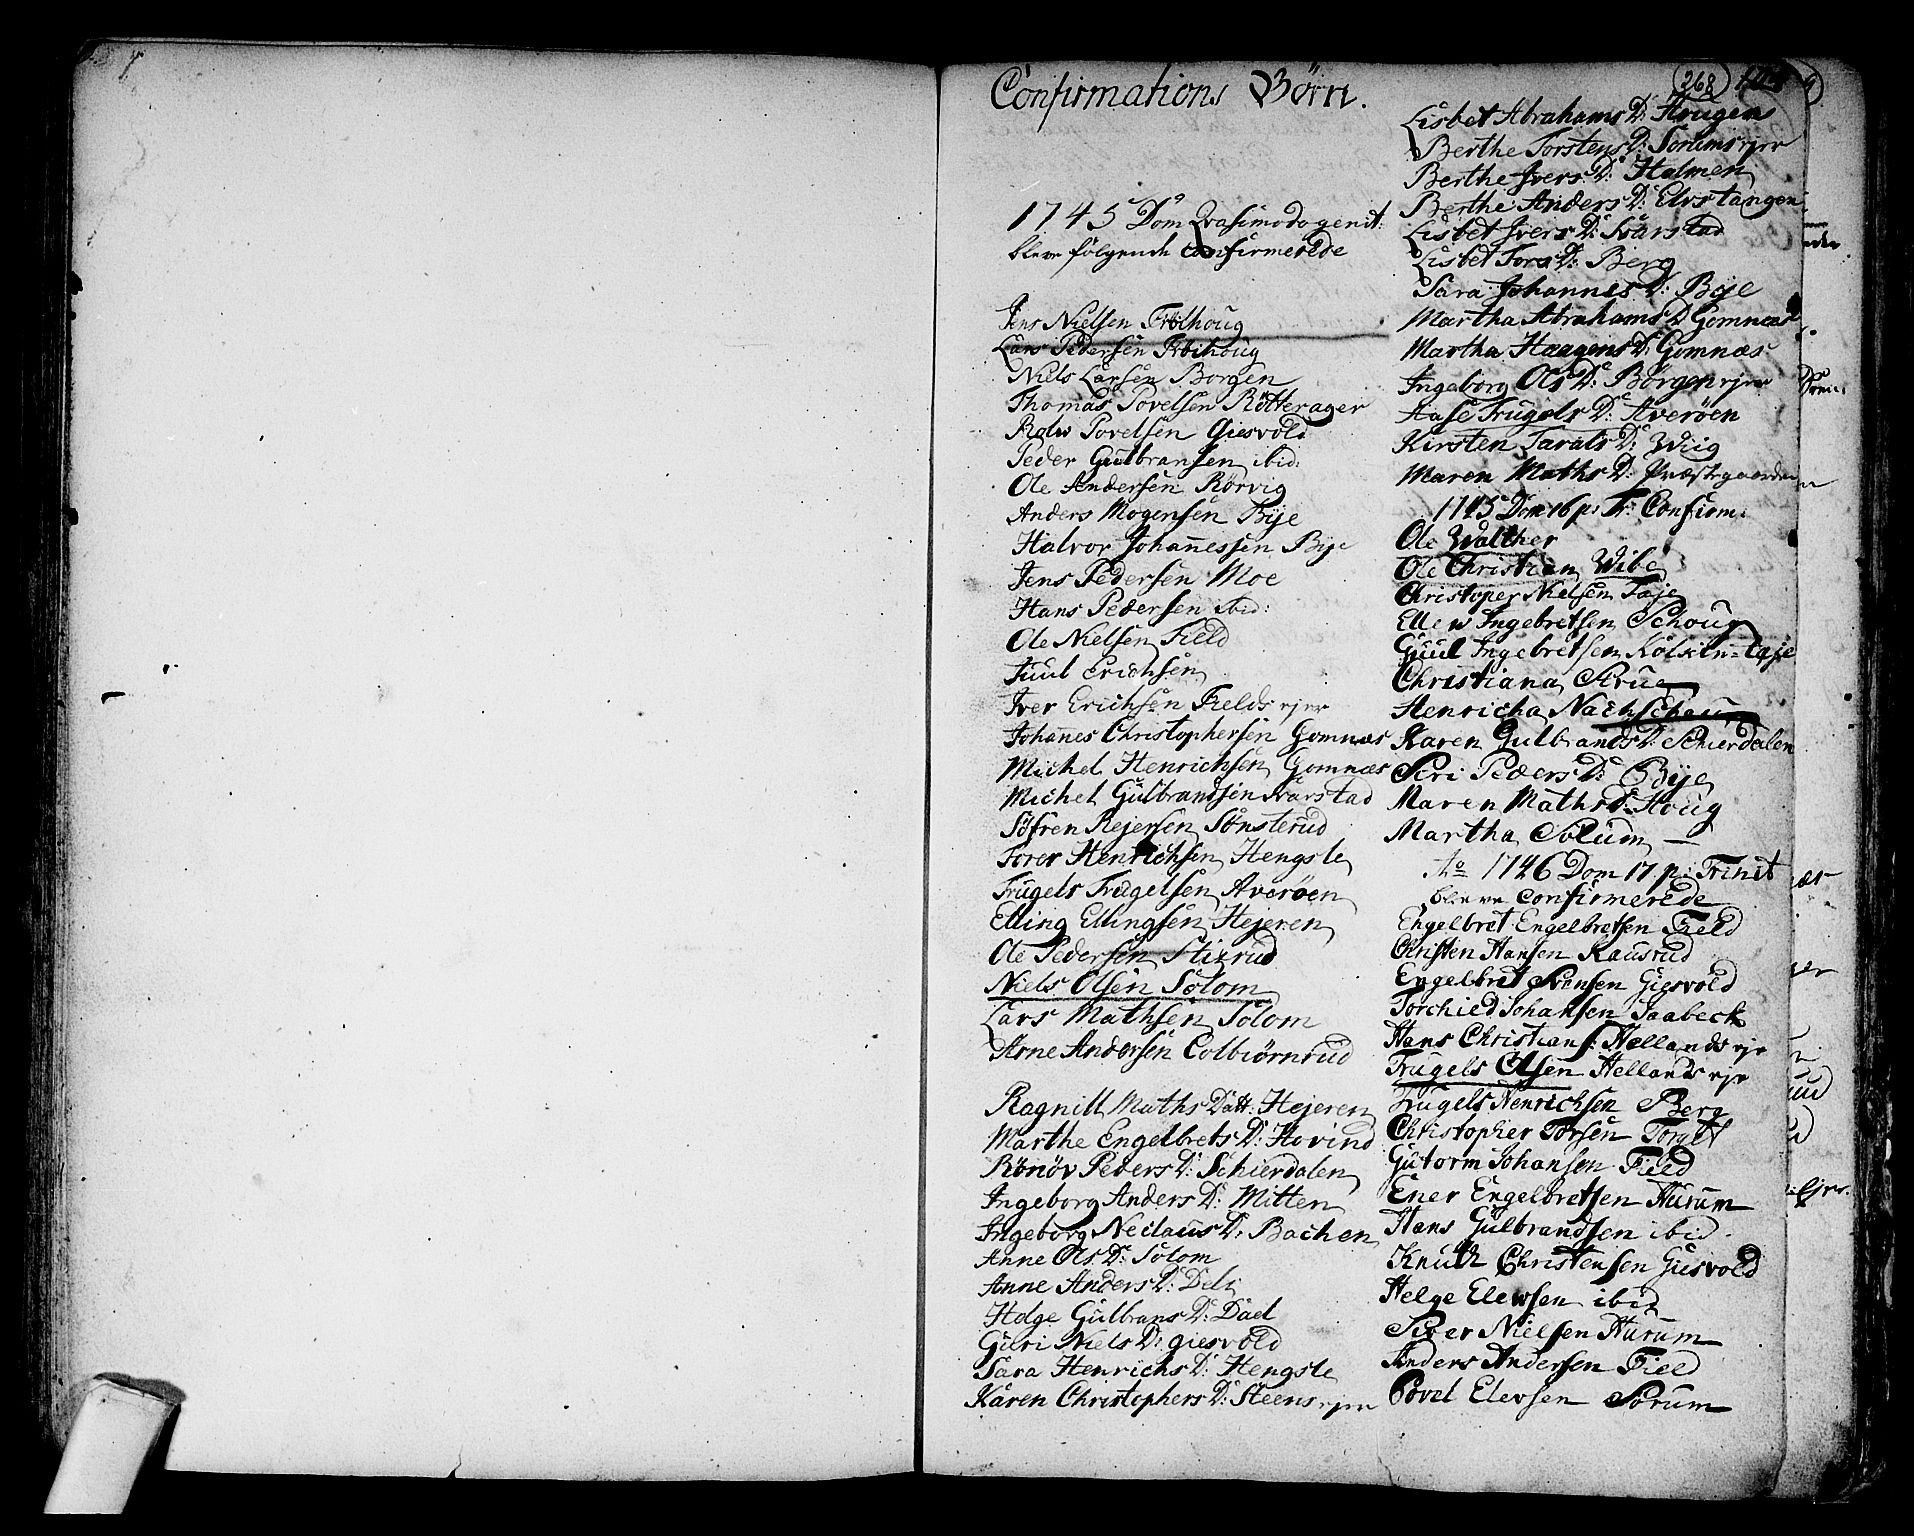 Confirmations Børn.
268
1745 Dom Qvasimodogenit:
bleve følgende confirmerede
Jens Nielsen Frøihoug
Lars Pedersen Frøihoug
Niels Larsen Borgen
Thomas Povelsen Røtterager
Rolv Povelsen Giesvold
Peder Gulbransen ibid:
Ole Andersen Rørvig
Anders Mogensen Bye
Halvor Johannessen Bye
Jens Pedersen Moe
Hans Pedersen ibid:
Ole Nielsen Field
Juul Erichsen
Iver Erichsen Fields ejer
Johanes Christophersen Gomnæs
Michel Henrichsen Gomnæs
Michel Gulbrandsen Svarstad
Søfren Rejersen Sønsterud
Torer Henrichsen Hengsle
Trugels Trugelsen Averøen
Elling Ellingsen Hejeren
Ole Pedersen Stixrud
Niels Olsen Solom
Lars Mathsen Solom
Arne Andersen Colbiørnrud
Ragnill Maths Datt: Hejeren
Marthe Engelbrets D: Hovind
Rønøv Peders D: Schierdalen
Ingeborg Anders D: Mitten
Ingeborg Neclaus D: Bachen
Anne Ols D: Solom
Anne Anders D: Deli
Helge Gulbrans D: Dael
Guri Niels D: giesvold
Sara Henrichs D: Hengsle
Karen Christophers D: Steens ejer
Lisbet Abrahams D: Hougen
Berthe Torstens D: Sorums ejer
Berthe Ivers D: Holmen
Berthe Anders D: Elvstangen
Lisbet Ivers D: Svarstad
Lisbet Tors D: Berg
Sara Johannes D: Bye
Martha Abrahams D Gomnæs
Martha Haagens D: Gomnæs
Ingeborg Ols D: Borgen ejer
Aase Trugels D: Averøen
Kirsten Tarals D: Wiig
Maren Maths D: Præstegaarden
1745 Dom 16 p: Tr: Confirm:
Ole Walther
Ole Christian Wibe
Christoper Nielsen Faje
Ellew Ingebretsen Schoug
Guul Ingebretsen Kolsrun=Eje
Christiana Strug
Henricha Nachschoug
Karen Gulbrands D: Schierdalen
Siri Peders D: Bye
Maren Maths D: Houg
Martha Solum
Ao 1746 Dom 17. p: Trinit
bleve confirmerede
Engelbret Engelbretsen Field
Christen Hansen Rausrud
Engelbret Svensen Giesvold
Torchied Johansen Saabeck
Hans Christians: Hellands eje
Trugels Olsen Hellands eje
Trugels Henrichsen Berg
Christopher Torsen Torget
Gutorm Johansen Field
Ener Engelbretsen Hurum
Hans Gulbrandsen ibid.
Knuth Christensen Giesvold
Helge Elewsen ibid
Siver Nielsen Hurum
Anders Andersen Field
Povel Elevsen Sorum